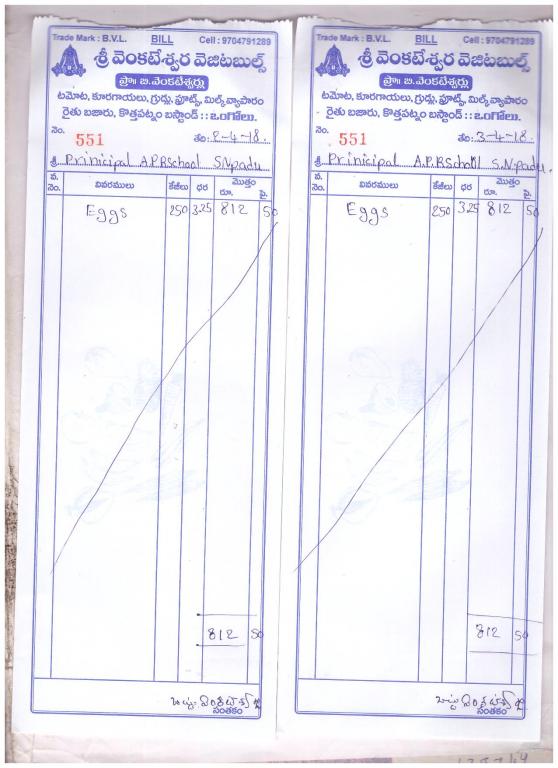 Trade Mark : B.V.L. BILL Cell : 9704791289
శ్రీ వెంకటేశ్వర వెజిటబుల్స్
ప్రొః బి.వెంకటేశ్వర్లు
టమోట, కూరగాయలు, గ్రుడ్లు, ఫ్రూట్స్, మిల్క్ వ్యాపారం
రైతు బజారు, కొత్తపట్నం బస్టాండ్ :: ఒంగోలు.
నెం. 551 తేది: 2-4-18.
శ్రీ Prinicipal A.P.RSchool S.Npadu
వ. నెం. వివరములు కేజీలు ధర మొత్తం రూ. పై.
Eggs 250 3.25 812 50
812 50
సంతకం
Trade Mark : B.V.L. BILL Cell : 9704791289
శ్రీ వెంకటేశ్వర వెజిటబుల్స్
ప్రొః బి.వెంకటేశ్వర్లు
టమోట, కూరగాయలు, గ్రుడ్లు, ఫ్రూట్స్, మిల్క్ వ్యాపారం
రైతు బజారు, కొత్తపట్నం బస్టాండ్ :: ఒంగోలు.
నెం. 551 తేది: 3-4-18.
శ్రీ Prinicipal A.P.RSchool S.N.padu.
వ. నెం. వివరములు కేజీలు ధర మొత్తం రూ. పై.
Eggs 250 3.25 812 50
812 50
సంతకం